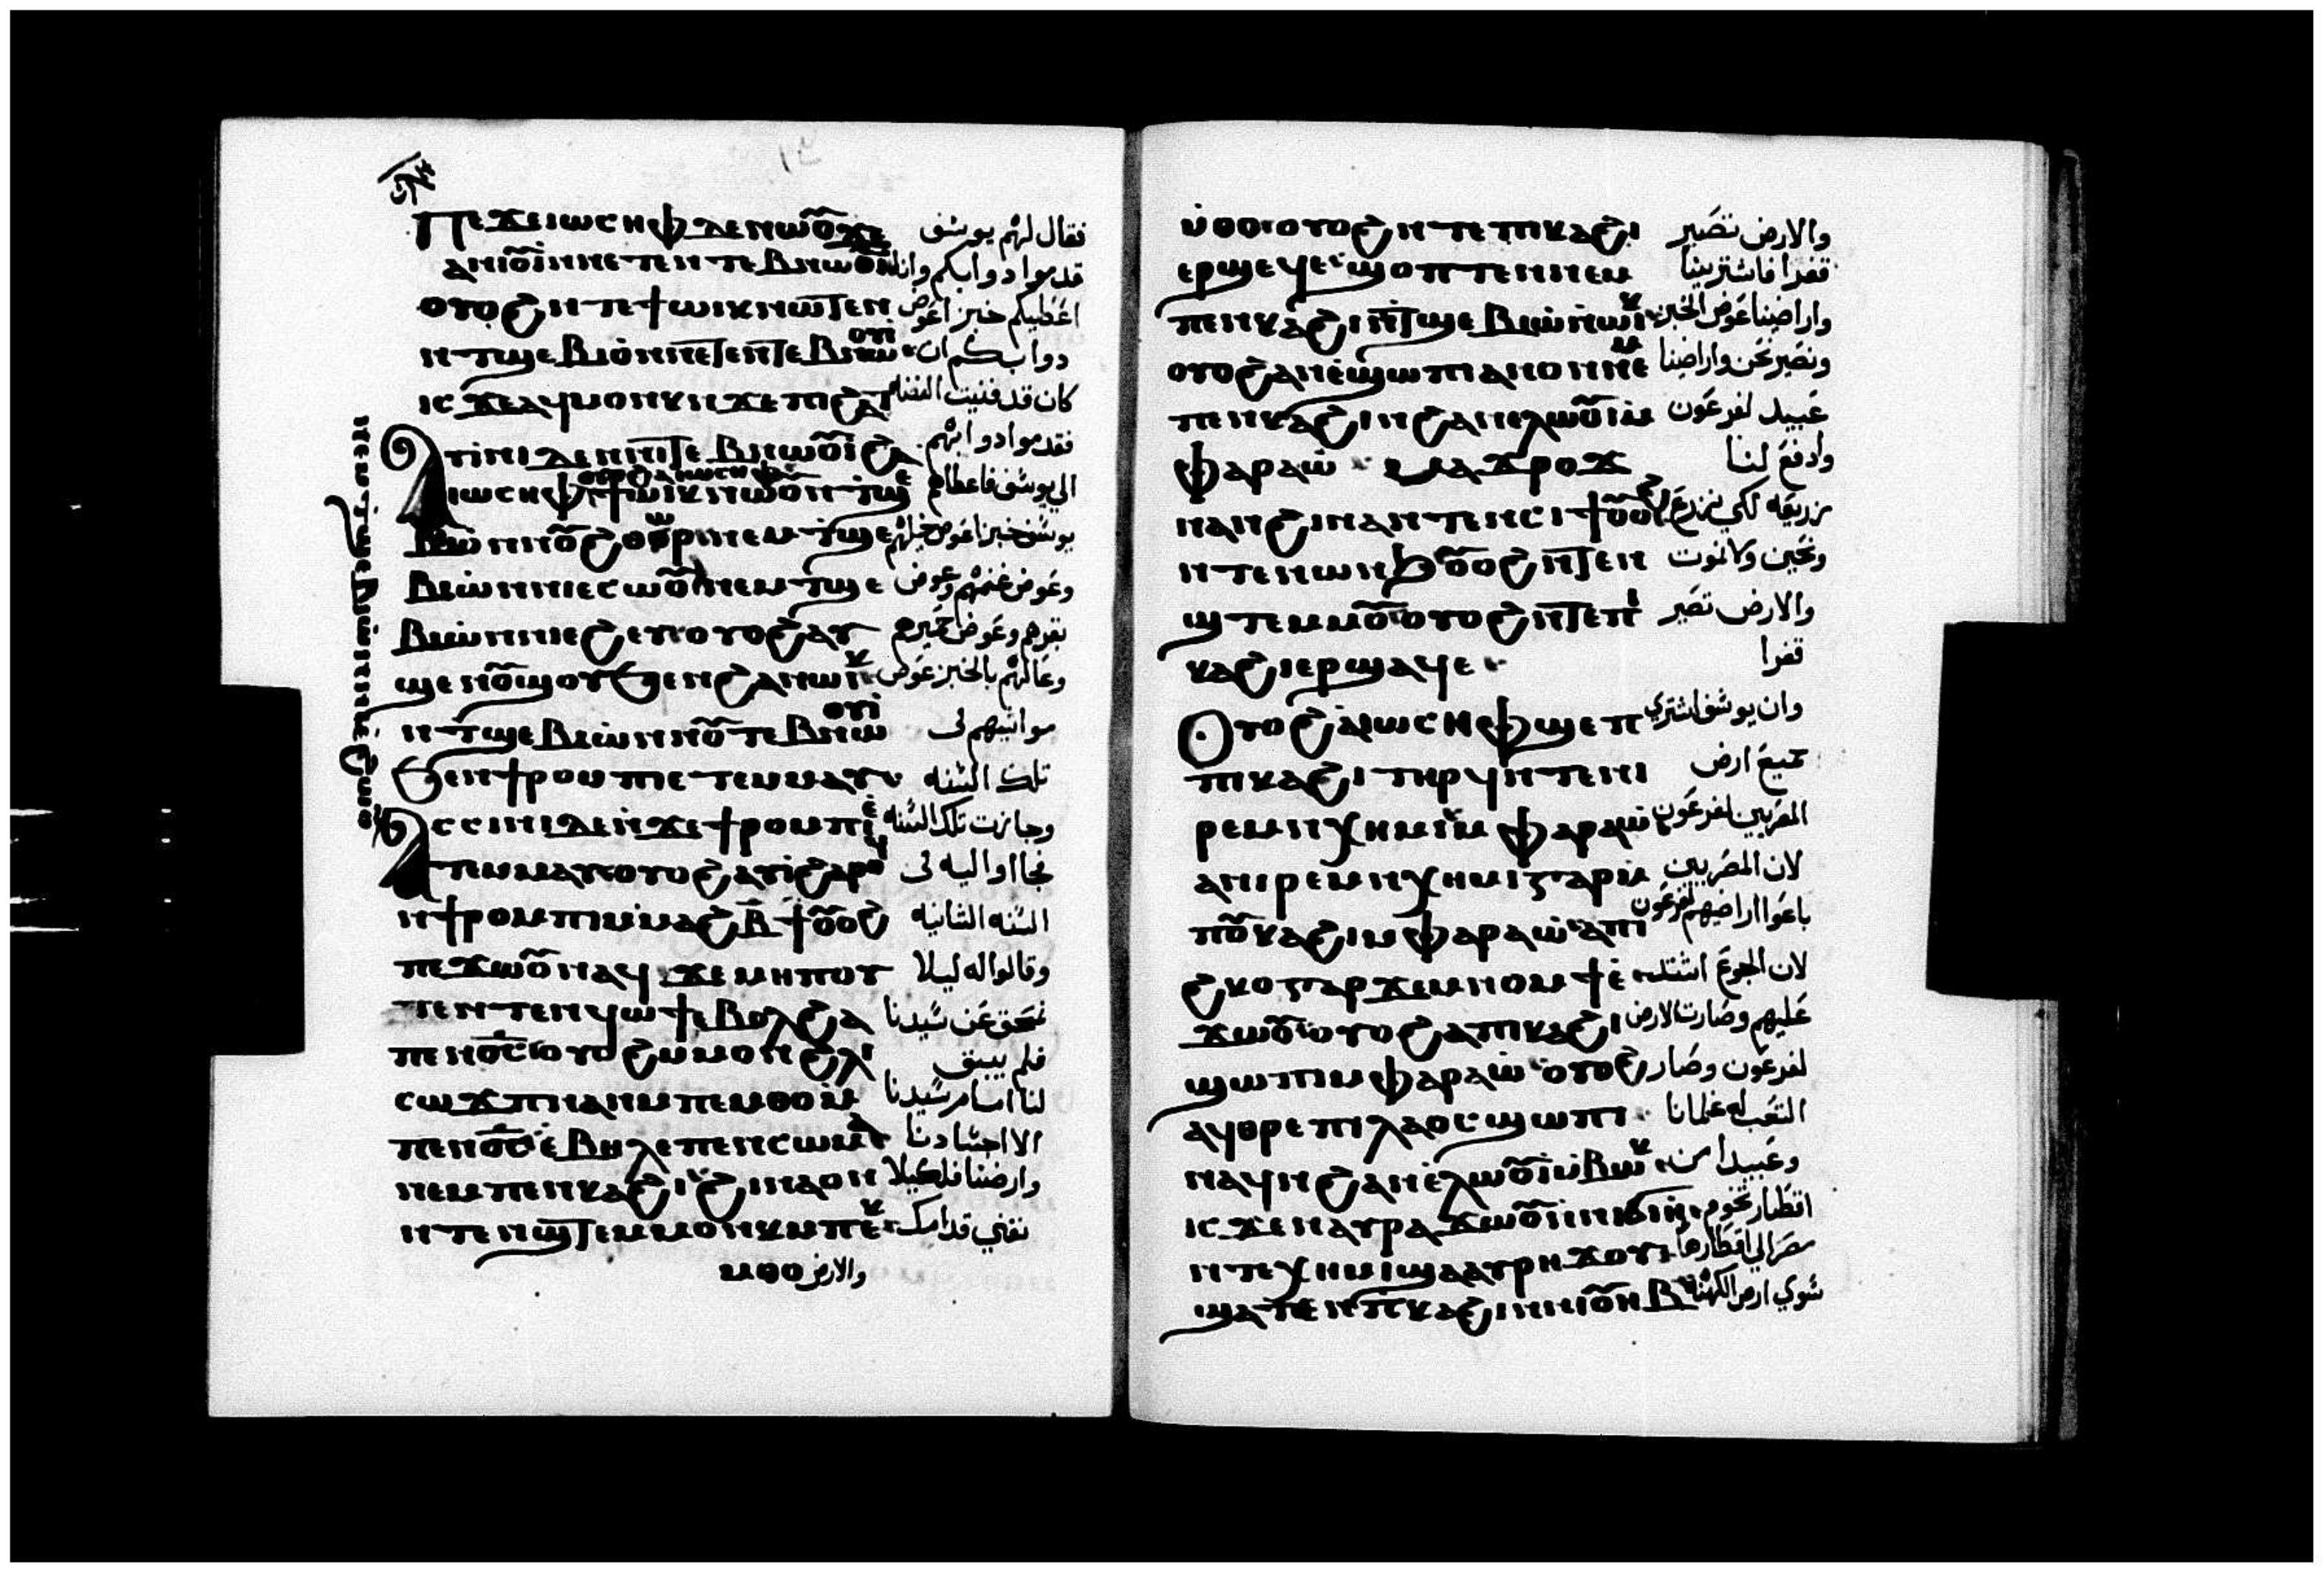 ⲡⲉϫⲉ ⲓⲱⲥⲏⲫ ⲇⲉ ⲛⲱⲟⲩ ϫⲉ فقال لهم يوسف
ⲁⲛⲓⲟⲩⲓ ⲛⲛⲉⲧⲉⲛⲧⲉⲃⲛⲱⲟⲩⲓ قدموا دوابكم وانا
ⲟⲩⲟϩ ⲛⲧⲉϯⲱⲓⲕ ⲛⲱⲧⲉⲛ اعطيكم خبز اعوض
ⲛⲧϣⲉⲃⲓⲱ ⲛⲛⲉⲧⲉⲛⲧⲉⲃⲛⲱⲟⲩⲓ دوابكم ان
ⲓⲥϫⲉ ⲁϥⲙⲟⲩⲛⲕ ⲛϫⲉ ⲡⲓϩⲁⲧ كان قد فنيت الفضه
ⲁⲩⲓⲛⲓ ⲇⲉ ⲛⲛⲟⲩⲧⲉⲃⲛⲱⲟⲩⲓ ϩⲁ فقدموا دوابهم
ⲓⲱⲥⲏⲫ ⲟⲩⲟϩ ⲁ ⲓⲱⲥⲏⲫ ϯⲱⲓⲕ ⲛⲱⲟⲩ ⲛⲧϣⲉ الي يوسف فاعطاهم
ⲃⲓⲱ ⲛⲛⲟⲩϩⲑⲱⲣ ⲛⲉⲙ ⲧϣⲉ يوسف خبز اعوض خيلهم
ⲃⲓⲱ ⲛⲛⲓⲉⲥⲱⲟⲩ ⲛⲉⲙ ⲧϣⲉ وعوض غنمهم وعوض
ⲃⲓⲱ ⲛⲛⲓⲉϩⲉⲡⲟⲩⲟϩ ⲁⲩ بقرهم وعوض حميرهم
ϣⲉⲛⲟⲩϣⲟⲩ ϧⲉⲛ ϩⲁⲛⲱⲓⲕ وعالهم بالخبز عوض
ⲛⲧϣⲉⲃⲓⲱ ⲛⲛⲟⲩⲧⲉⲃⲛⲱⲟⲩⲓ مواشيهم في
ϧⲉⲛ ϯⲣⲟⲙⲡⲓ ⲉⲧⲉⲙⲙⲁⲩ تلك السنه
ⲁⲥⲥⲓⲛⲓ ⲇⲉ ⲛϫⲉ ϯⲣⲟⲙⲡⲓ ⲉ وجازت تلك السنه
ⲧⲉⲙⲙⲁⲩ ⲟⲩⲟϩ ⲁⲩⲓ ϩⲁⲣⲟϥ فجااوا اليه في
ⲛϯⲣⲟⲙⲡⲓ ⲙⲙⲁϩⲃ̄ ϯⲟⲩⲟϩ السنه الثانيه
ⲡⲉϫⲱⲟⲩ ⲛⲁϥ ϫⲉ ⲙⲏⲡⲟⲩ وقالوا له ليلا
ⲧⲉ ⲛⲧⲉⲛϥⲱϯ ⲉⲃⲟⲗ ϩⲁ نمحق عن سيدنا
ⲡⲉⲛⲟ̅ⲥ̅ ⲟⲩⲟϩ ⲙⲙⲟⲛ ϩⲗⲓ فلم يبق
ⲥⲱϫⲡ ⲛⲁⲛ ⲙⲡⲉⲙⲑⲟ ⲙ لنا امام سيدنا
ⲡⲉⲛⲟ̅ⲥ̅ ⲉⲃⲏⲗ ⲉⲡⲉⲛⲥⲱⲙⲁ الا اجسادنا
ⲛⲉⲙ ⲡⲉⲛⲕⲁϩⲓ ϩⲓⲛⲁ ⲟⲩⲛ وارضنا فلكيلا
ⲛⲧⲉⲛϣⲧⲉⲙⲙⲟⲩⲛⲕ ⲙⲡⲉⲕ نفني قدامك
ⲙⲑⲟ والارض
ⲛⲉⲙ ⲧϣⲉⲃⲓⲱ ⲛⲛⲓⲉϩⲱⲟⲩ
ⲙⲑⲟ ⲟⲩⲟϩ ⲛⲧⲉ ⲡⲓⲕⲁϩⲓ والارض تصير
ⲉⲣϣⲉϥⲉ ϣⲟⲡⲧⲉⲛ ⲛⲉⲙ قفرا فاشترينا
ⲡⲉⲛⲕⲁϩⲓ ⲛⲧϣⲉⲃⲓⲱ ⲛⲱⲓⲕ واراضينا عوض الخبز
ⲟⲩⲟϩ ⲁⲛⲉϣⲱⲡⲓ ⲁⲛⲟⲛ ⲛⲉⲙ ونصير نحن واراضينا
ⲡⲉⲛⲕⲁϩⲓ ⲛϩⲁⲛⲉⲗⲱⲟⲩⲓ ⲙ عبيد لفرعون
ⲫⲁⲣⲁⲱ ⲙⲁ ϫⲣⲟϫ وادفع لنا
ⲛⲁⲛ ϩⲓⲛⲁ ⲛⲧⲉⲛⲥⲓϯ ⲟⲩⲟϩ زريعه لكي نزرع
ⲛⲧⲉⲛⲱⲛϧ ⲟⲩⲟϩ ⲛⲧⲉⲛ ونحيي ولا نموت
ϣⲧⲉⲙⲙⲟⲩ ⲟⲩⲟϩ ⲛⲧⲉⲡⲓ والارض تصير
ⲕⲁϩⲓ ⲉⲣϣⲁϥⲉ قفرا
ⲟⲩⲟϩ ⲁ ⲓⲱⲥⲏⲫ ϣⲉⲡ وان يوسف اشتري
ⲡⲓⲕⲁϩⲓ ⲧⲏⲣϥ ⲛⲧⲉ ⲛⲓ جميع ارض
ⲣⲉⲙⲛⲭⲏⲙⲓ ⲙⲫⲁⲣⲁⲱ المصريين لفرعون
ⲁ ⲛⲓⲣⲉⲙⲛⲭⲏⲙⲓ ⲅⲁⲣ ϯ لان المصريين
ⲡⲟⲩⲕⲁϩⲓ ⲙⲫⲁⲣⲁⲱ ⲁ ⲡⲓ باعوا اراضيهم لفرعون
ϩⲕⲟ ⲅⲁⲣ ϫⲉⲙⲛⲟⲙϯ ⲉ لان الجوع اشتد
ϫⲱⲟⲩ ⲟⲩⲟϩ ⲁ ⲡⲓⲕⲁϩⲓ عليهم وصارت الارض
ϣⲱⲡⲓ ⲙⲫⲁⲣⲁⲱ ⲟⲩⲟϩ لفرعون وصار
ⲁϥⲑⲣⲉ ⲡⲓⲗⲁⲟⲥ ϣⲱⲡⲓ الشعب له غلمانا
ⲛⲁϥ ⲛϩⲁⲛⲉⲗⲱⲟⲩⲓ ⲙⲃⲱⲕ وعبيدا من
ⲓⲥϫⲉⲛ ⲁⲩⲣⲁϫⲱⲟⲩ ⲛⲛⲓϭⲓⲏ اقطار تخوم
ⲛⲧⲉ ⲭⲏⲙⲓ ϣⲁ ⲁⲩⲣⲏϫⲟⲩ مصر الي اقطارها
ϣⲁⲧⲉⲛ ⲡⲕⲁϩⲓ ⲛⲛⲓⲟⲩⲏⲃ سوي ارض الكهنه